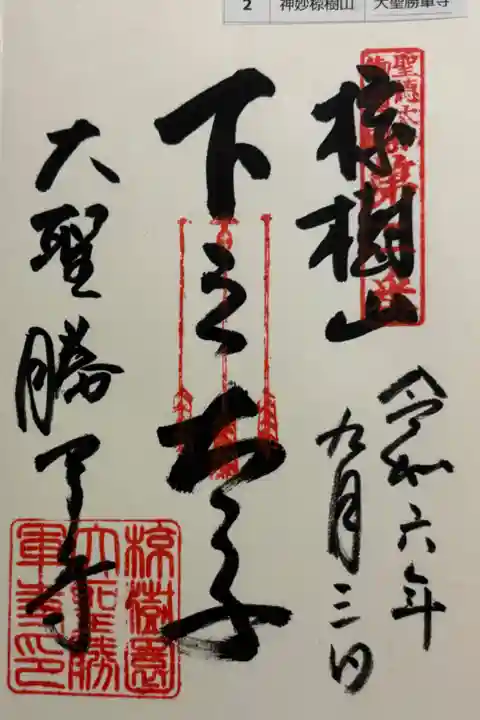 2 神妙椋樹山 大聖勝軍寺
椋樹山
下之太子
大聖勝军寺
令和六年
九月三日
椋樹園
大聖勝
軍寺印